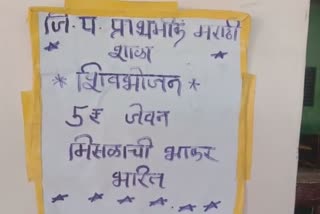 जि. प. प्राथमिक मराठी
शाळा
* शिवभोजन *
5₹ जेवन
मिसळाची भाकर
भरित